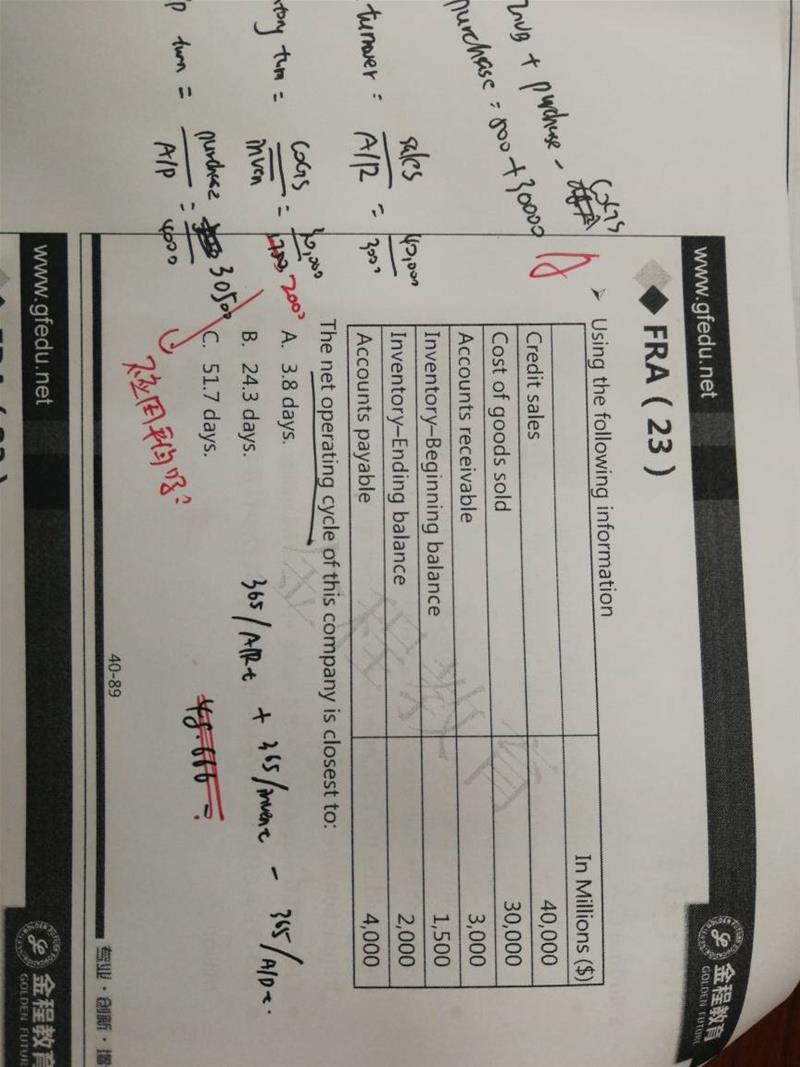 www.gfedu.net
金程教育
GOLDEN FUTURE
FRA ( 23 )
Using the following information
In Millions ($)
Credit sales 40,000
Cost of goods sold 30,000
Accounts receivable 3,000
Inventory–Beginning balance 1,500
Inventory–Ending balance 2,000
Accounts payable 4,000
The net operating cycle of this company is closest to:
A. 3.8 days.
B. 24.3 days.
C. 51.7 days.
金程教育
40-89
专业·创新·增
+ purchase - COGS
purchase = 500 + 30000
turnover = sales / A/R = 40,000 / 3000
tory turn = COGS / inven = 30,000 / 2000
/p turn = purchase / A/P = 30500 / 4000
365/A/R t + 365/inven t - 365/A/P t.
48.666
不应用平均吗?
www.gfedu.net
金程教育
GOLDEN FUTUR